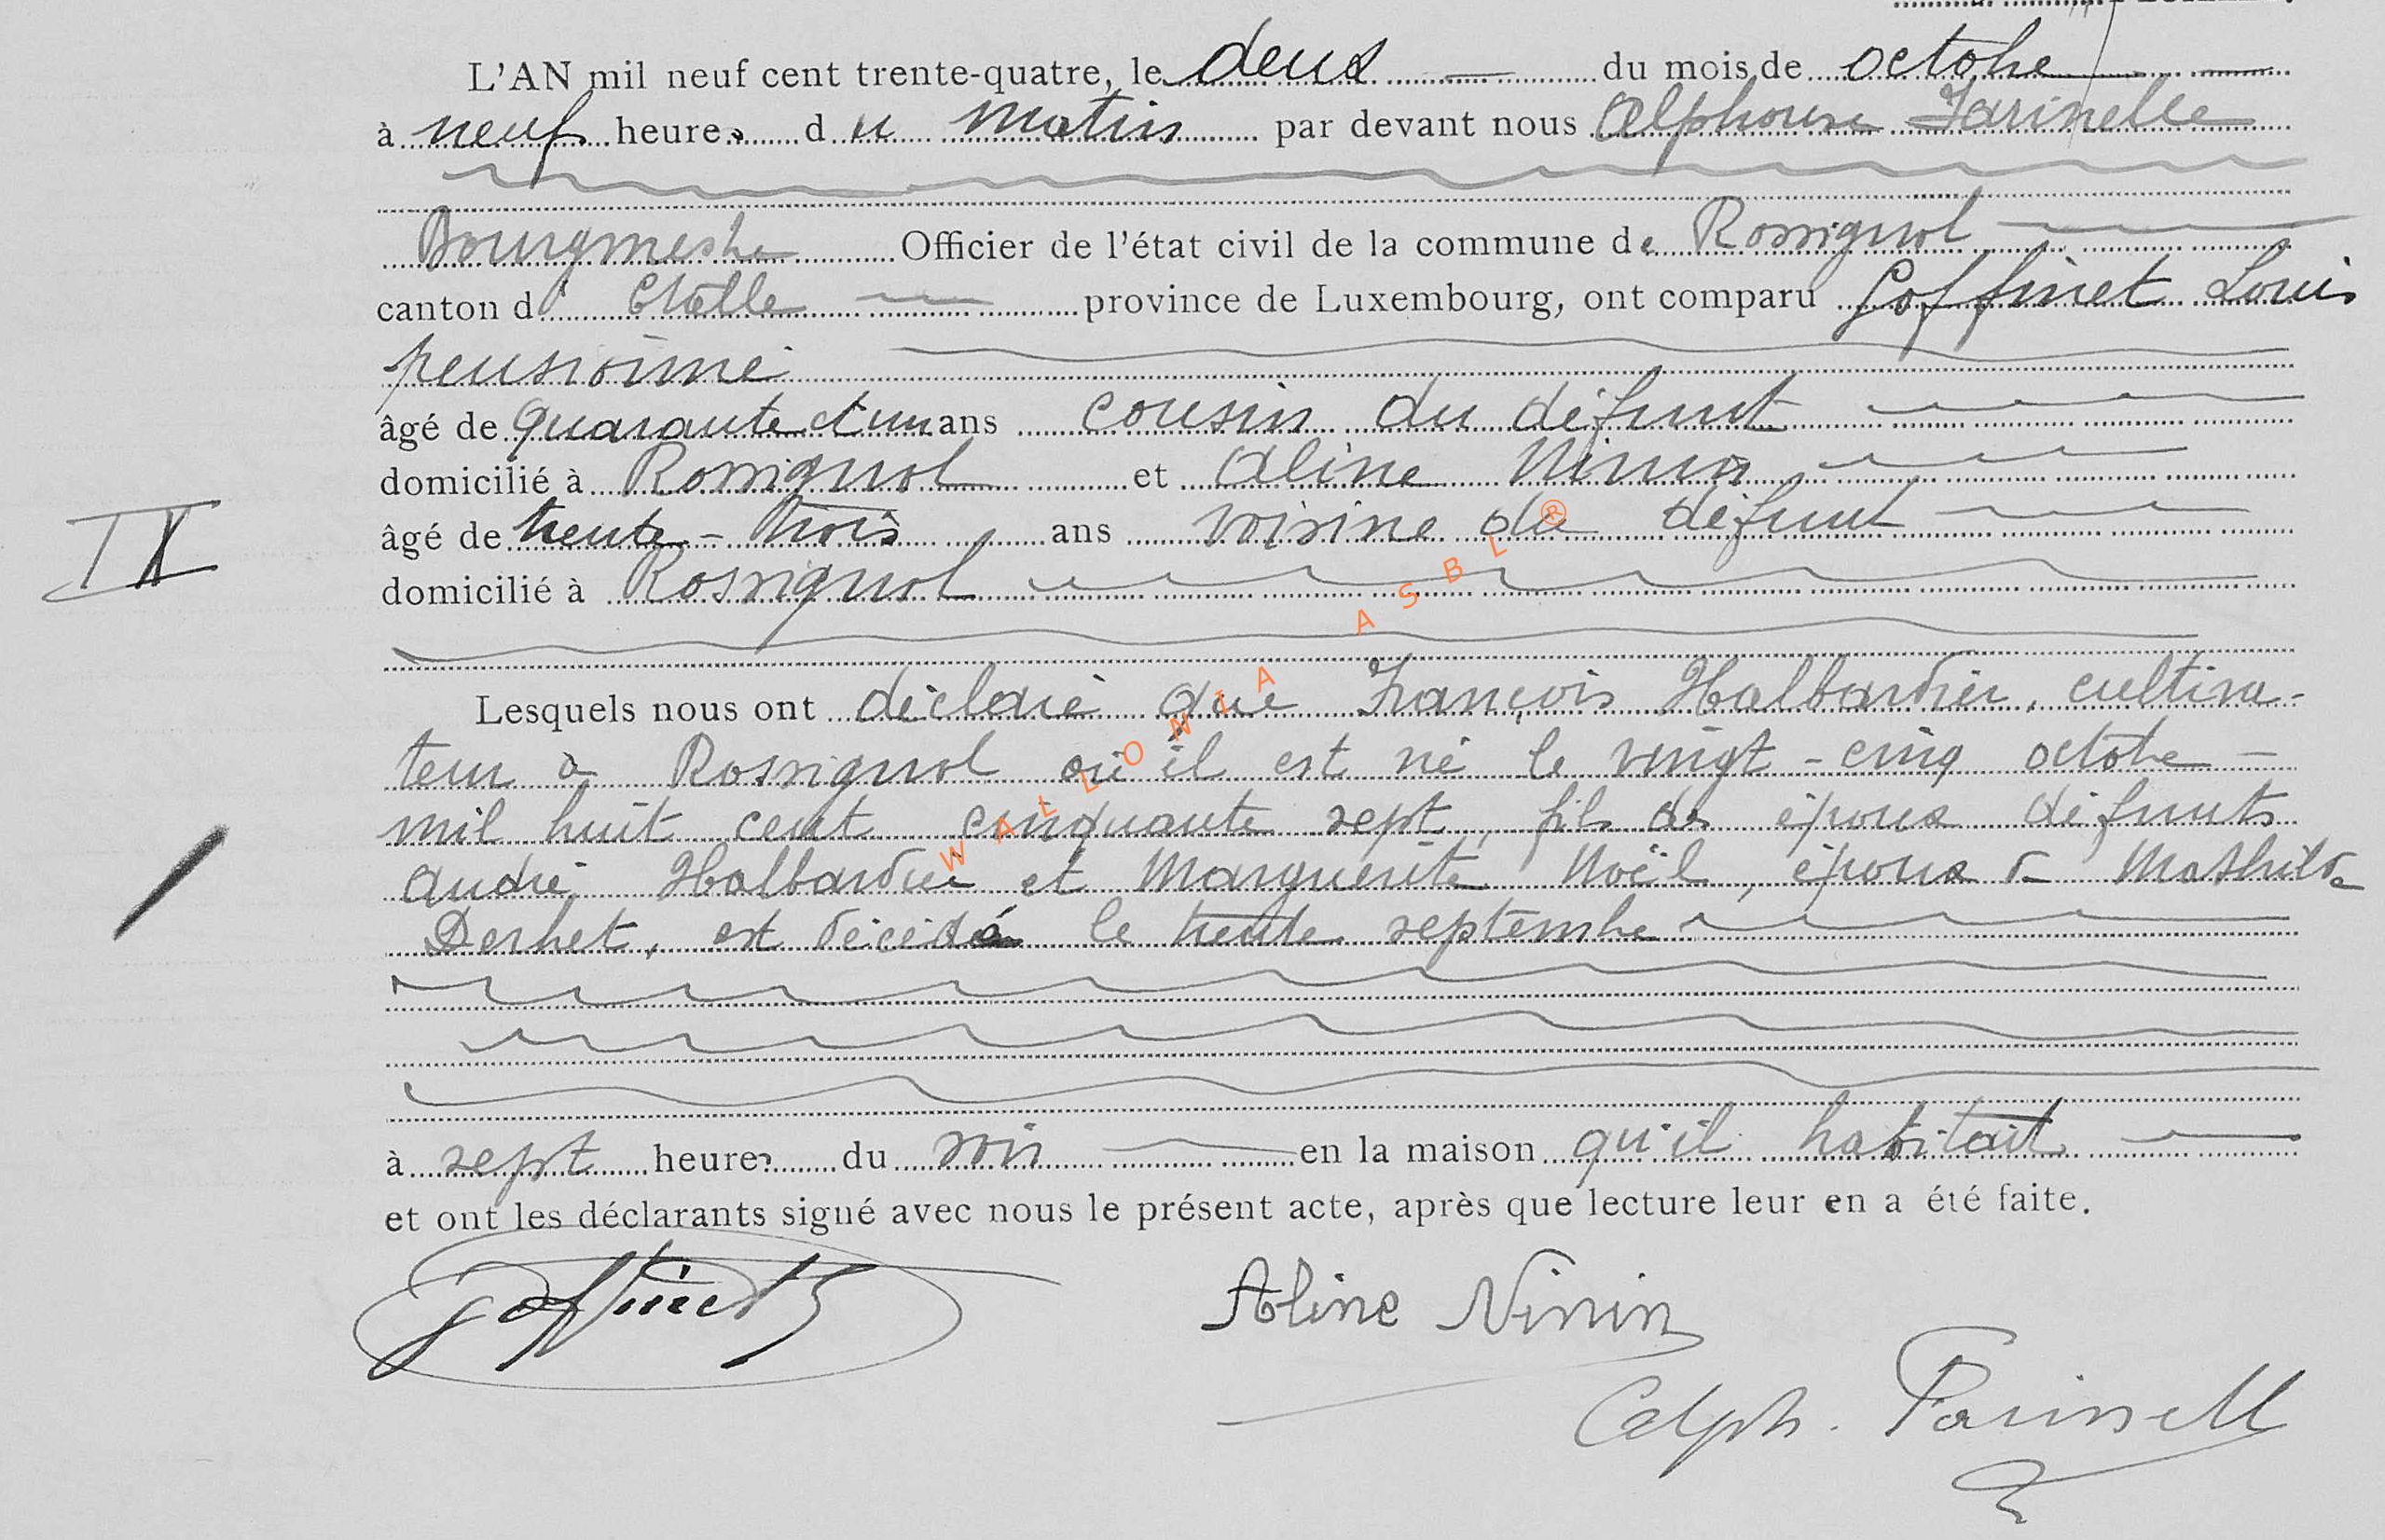 L'AN mil neuf cent trente-quatre, le deux du mois de octobre
à neuf heures du matin par devant nous Alphonse Farinelle
Bourgmestre Officier de l'état civil de la commune de Rossignol
canton d'Etalle province de Luxembourg, ont comparu Goffinet Louis
pensionné
âgé de quarante et un ans cousin du défunt
domicilié à Rossignol et Aline Ninin
âgé de trente-trois ans voisine du défunt
domicilié à Rossignol
IX
Lesquels nous ont déclaré que François Halbardier, cultiva-
teur à Rossignol où il est né le vingt-cinq octobre
mil huit cent cinquante sept, fils des époux défunts
André Halbardier et Marguerite Noël, époux de Mathilde
Derhet, est décédé le trente septembre
à sept heures du soir en la maison qu'il habitait
et ont les déclarants signé avec nous le présent acte, après que lecture leur en a été faite.
Goffinet L
Aline Ninin
Alph. Farinelle
WALLONIA ASBL ®